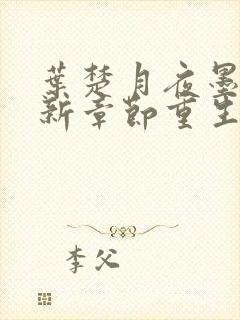 葉楚月夜墨
新章節重生
李父